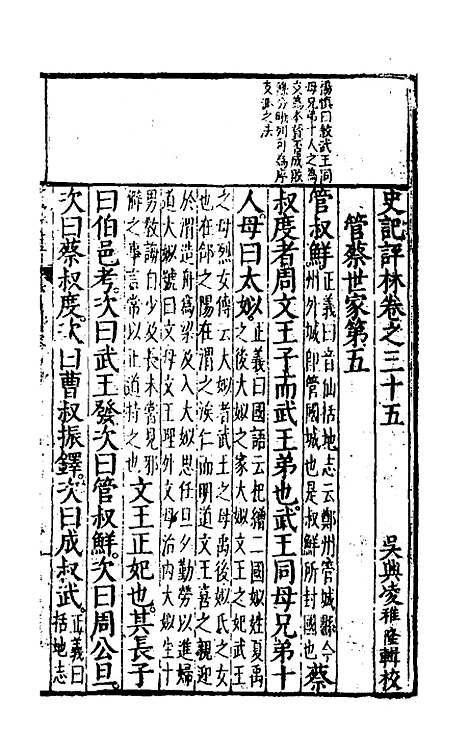 史記評林卷之三十五
吳興凌稚隆輯校
管蔡世家第五
管叔鮮正義曰音仙括地志云鄭州管城縣今州外城即管國城也是叔鮮所封國也蔡
叔度者周文王子而武王弟也武王同母兄弟十
人母曰太姒正義曰國語云杞繒二國姒姓夏禹之後大姒之家大姒文王之妃武王
之母烈女傳云大姒者武王之母禹後姒氏之女也在郃之陽在渭之涘仁而明道文王喜之親迎
於渭造舟為梁及入大姒思任旦夕勤勞以進婦道大姒號曰文母文王理外文母治內大姒生十
男教誨自少及長未嘗見邪僻之事言常以正道持之也文王正妃也其長子
曰伯邑考次曰武王發次曰管叔鮮次曰周公旦
次曰蔡叔度次曰曹叔振鐸次曰成叔武正義曰括地志
湯慎曰敘武王同
母兄弟十人之為
支為本
條分明列可為序
支派之法